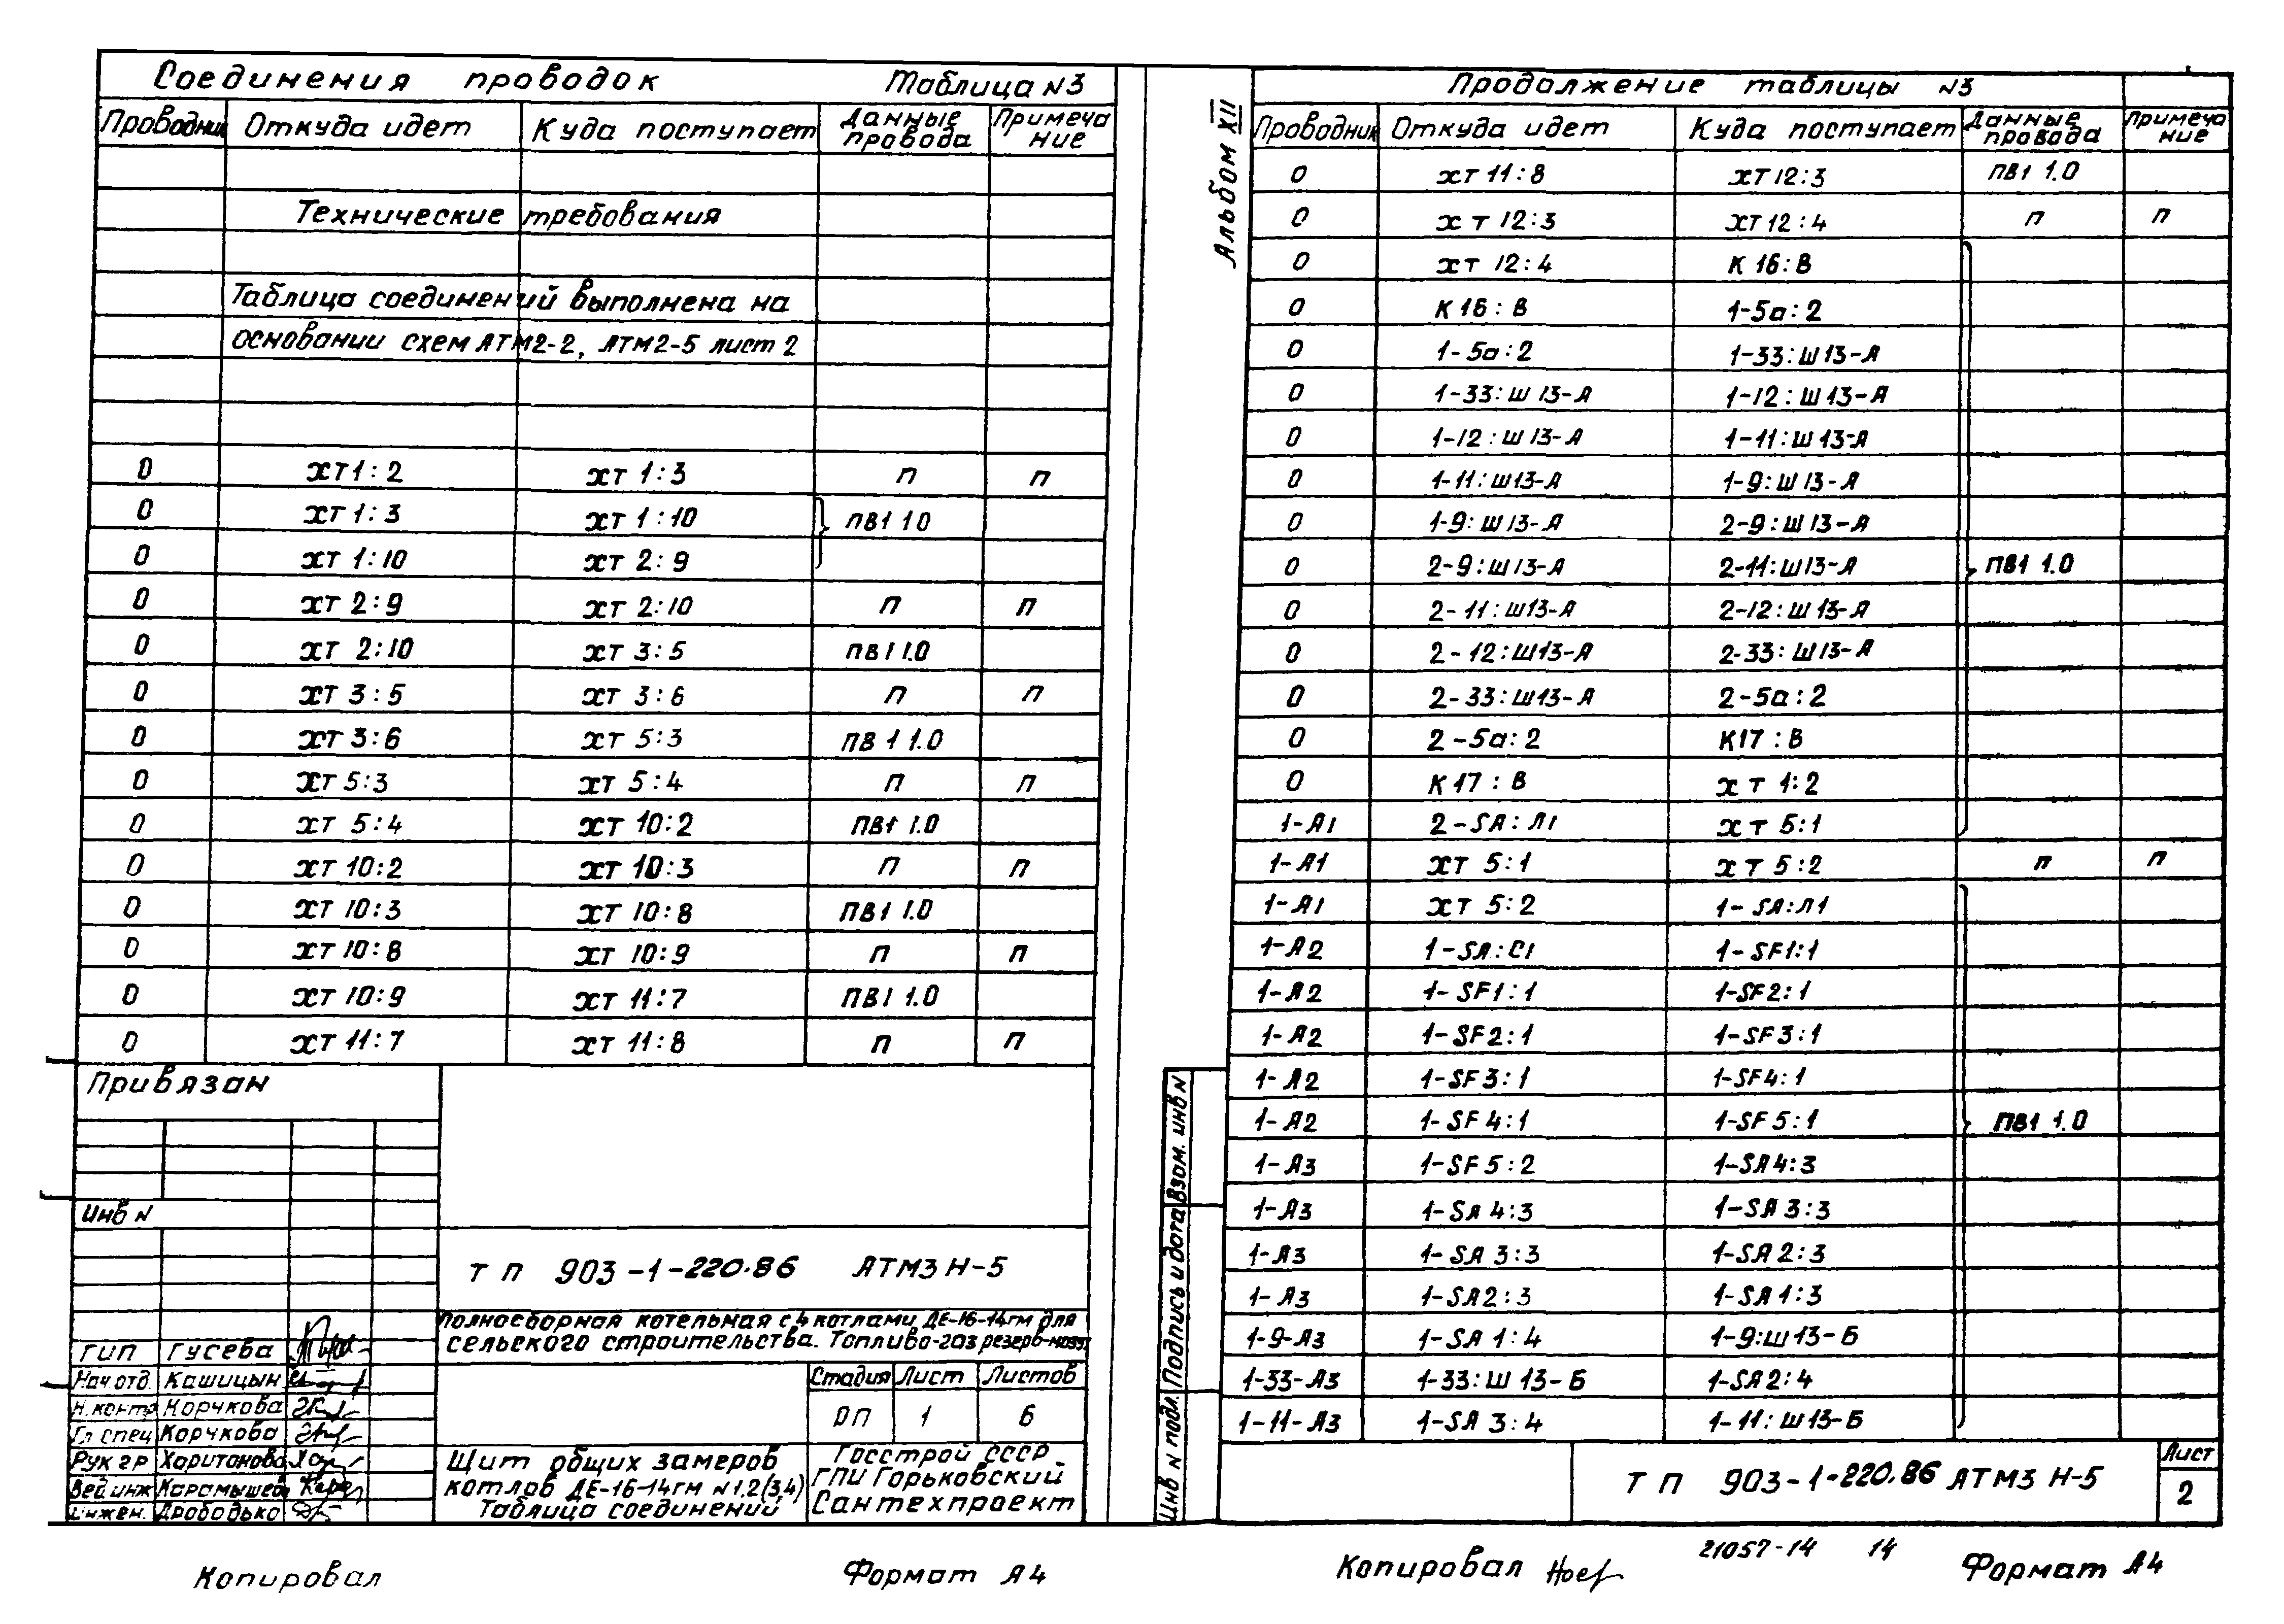 Соединения проводок Таблица N3
Проводник Откуда идет Куда поступает Данные провода Примечание
Технические требования
Таблица соединений выполнена на
основании схем АТМ2-2, АТМ2-5 лист 2
0 ХТ1:2 ХТ 1:3 п п
0 ХТ 1:3 ХТ 1:10 ПВ1 1.0
0 ХТ 1:10 ХТ 2:9
0 ХТ 2:9 ХТ 2:10 п п
0 ХТ 2:10 ХТ 3:5 ПВ1 1.0
0 ХТ 3:5 ХТ 3:6 п п
0 ХТ 3:6 ХТ 5:3 ПВ 1 1.0
0 ХТ 5:3 ХТ 5:4 п п
0 ХТ 5:4 ХТ 10:2 ПВ1 1.0
0 ХТ 10:2 ХТ 10:3 п п
0 ХТ 10:3 ХТ 10:8 ПВ1 1.0
0 ХТ 10:8 ХТ 10:9 п п
0 ХТ 10:9 ХТ 11:7 ПВ1 1.0
0 ХТ 11:7 ХТ 11:8 п п
Привязан
Инв N
ТП 903-1-220.86 АТМ3 Н-5
Полносборная котельная с 4 котлами ДЕ-16-14гм для
сельского строительства. Топливо-газ резерв-мазут
ГИП Гусева
Нач.отд. Кашицын
Н.контр Корчкова
Гл спец Корчкова
Рук гр Харитонова
Вед инж Карамышева
Инжен. Дрободько
Стадия Лист Листов
РП 1 6
Щит общих замеров
котлов ДЕ-16-14гм N1,2(3,4)
Таблица соединений
Госстрой СССР
ГПИ Горьковский
Сантехпроект
Копировал Формат А4
Альбом XII
Продолжение таблицы N3
Проводник Откуда идет Куда поступает Данные провода Примечание
0 ХТ 11:8 ХТ 12:3 ПВ1 1.0
0 ХТ 12:3 ХТ 12:4 п п
0 ХТ 12:4 К 16:В
0 К 16:В 1-5а:2
0 1-5а:2 1-33:Ш13-А
0 1-33:Ш13-А 1-12:Ш13-А
0 1-12:Ш13-А 1-11:Ш13-А
0 1-11:Ш13-А 1-9:Ш13-А
0 1-9:Ш13-А 2-9:Ш13-А
0 2-9:Ш13-А 2-11:Ш13-А ПВ1 1.0
0 2-11:Ш13-А 2-12:Ш13-А
0 2-12:Ш13-А 2-33:Ш13-А
0 2-33:Ш13-А 2-5а:2
0 2-5а:2 К17:В
0 К17:В ХТ 1:2
1-А1 2-SA:Л1 ХТ 5:1
1-А1 ХТ 5:1 ХТ 5:2 п п
1-А1 ХТ 5:2 1-SA:Л1
1-А2 1-SA:С1 1-SF1:1
1-А2 1-SF1:1 1-SF2:1
1-А2 1-SF2:1 1-SF3:1
1-А2 1-SF3:1 1-SF4:1
1-А2 1-SF4:1 1-SF5:1 ПВ1 1.0
1-А3 1-SF5:2 1-SA4:3
1-А3 1-SA4:3 1-SA3:3
1-А3 1-SA3:3 1-SA2:3
1-А3 1-SA2:3 1-SA1:3
1-9-А3 1-SA1:4 1-9:Ш13-Б
1-33-А3 1-33:Ш13-Б 1-SA2:4
1-11-А3 1-SA3:4 1-11:Ш13-Б
Инв N подл. Подпись и дата Взам. инв N
ТП 903-1-220.86 АТМ3 Н-5
Лист
2
21057-14 14
Копировал Формат А4